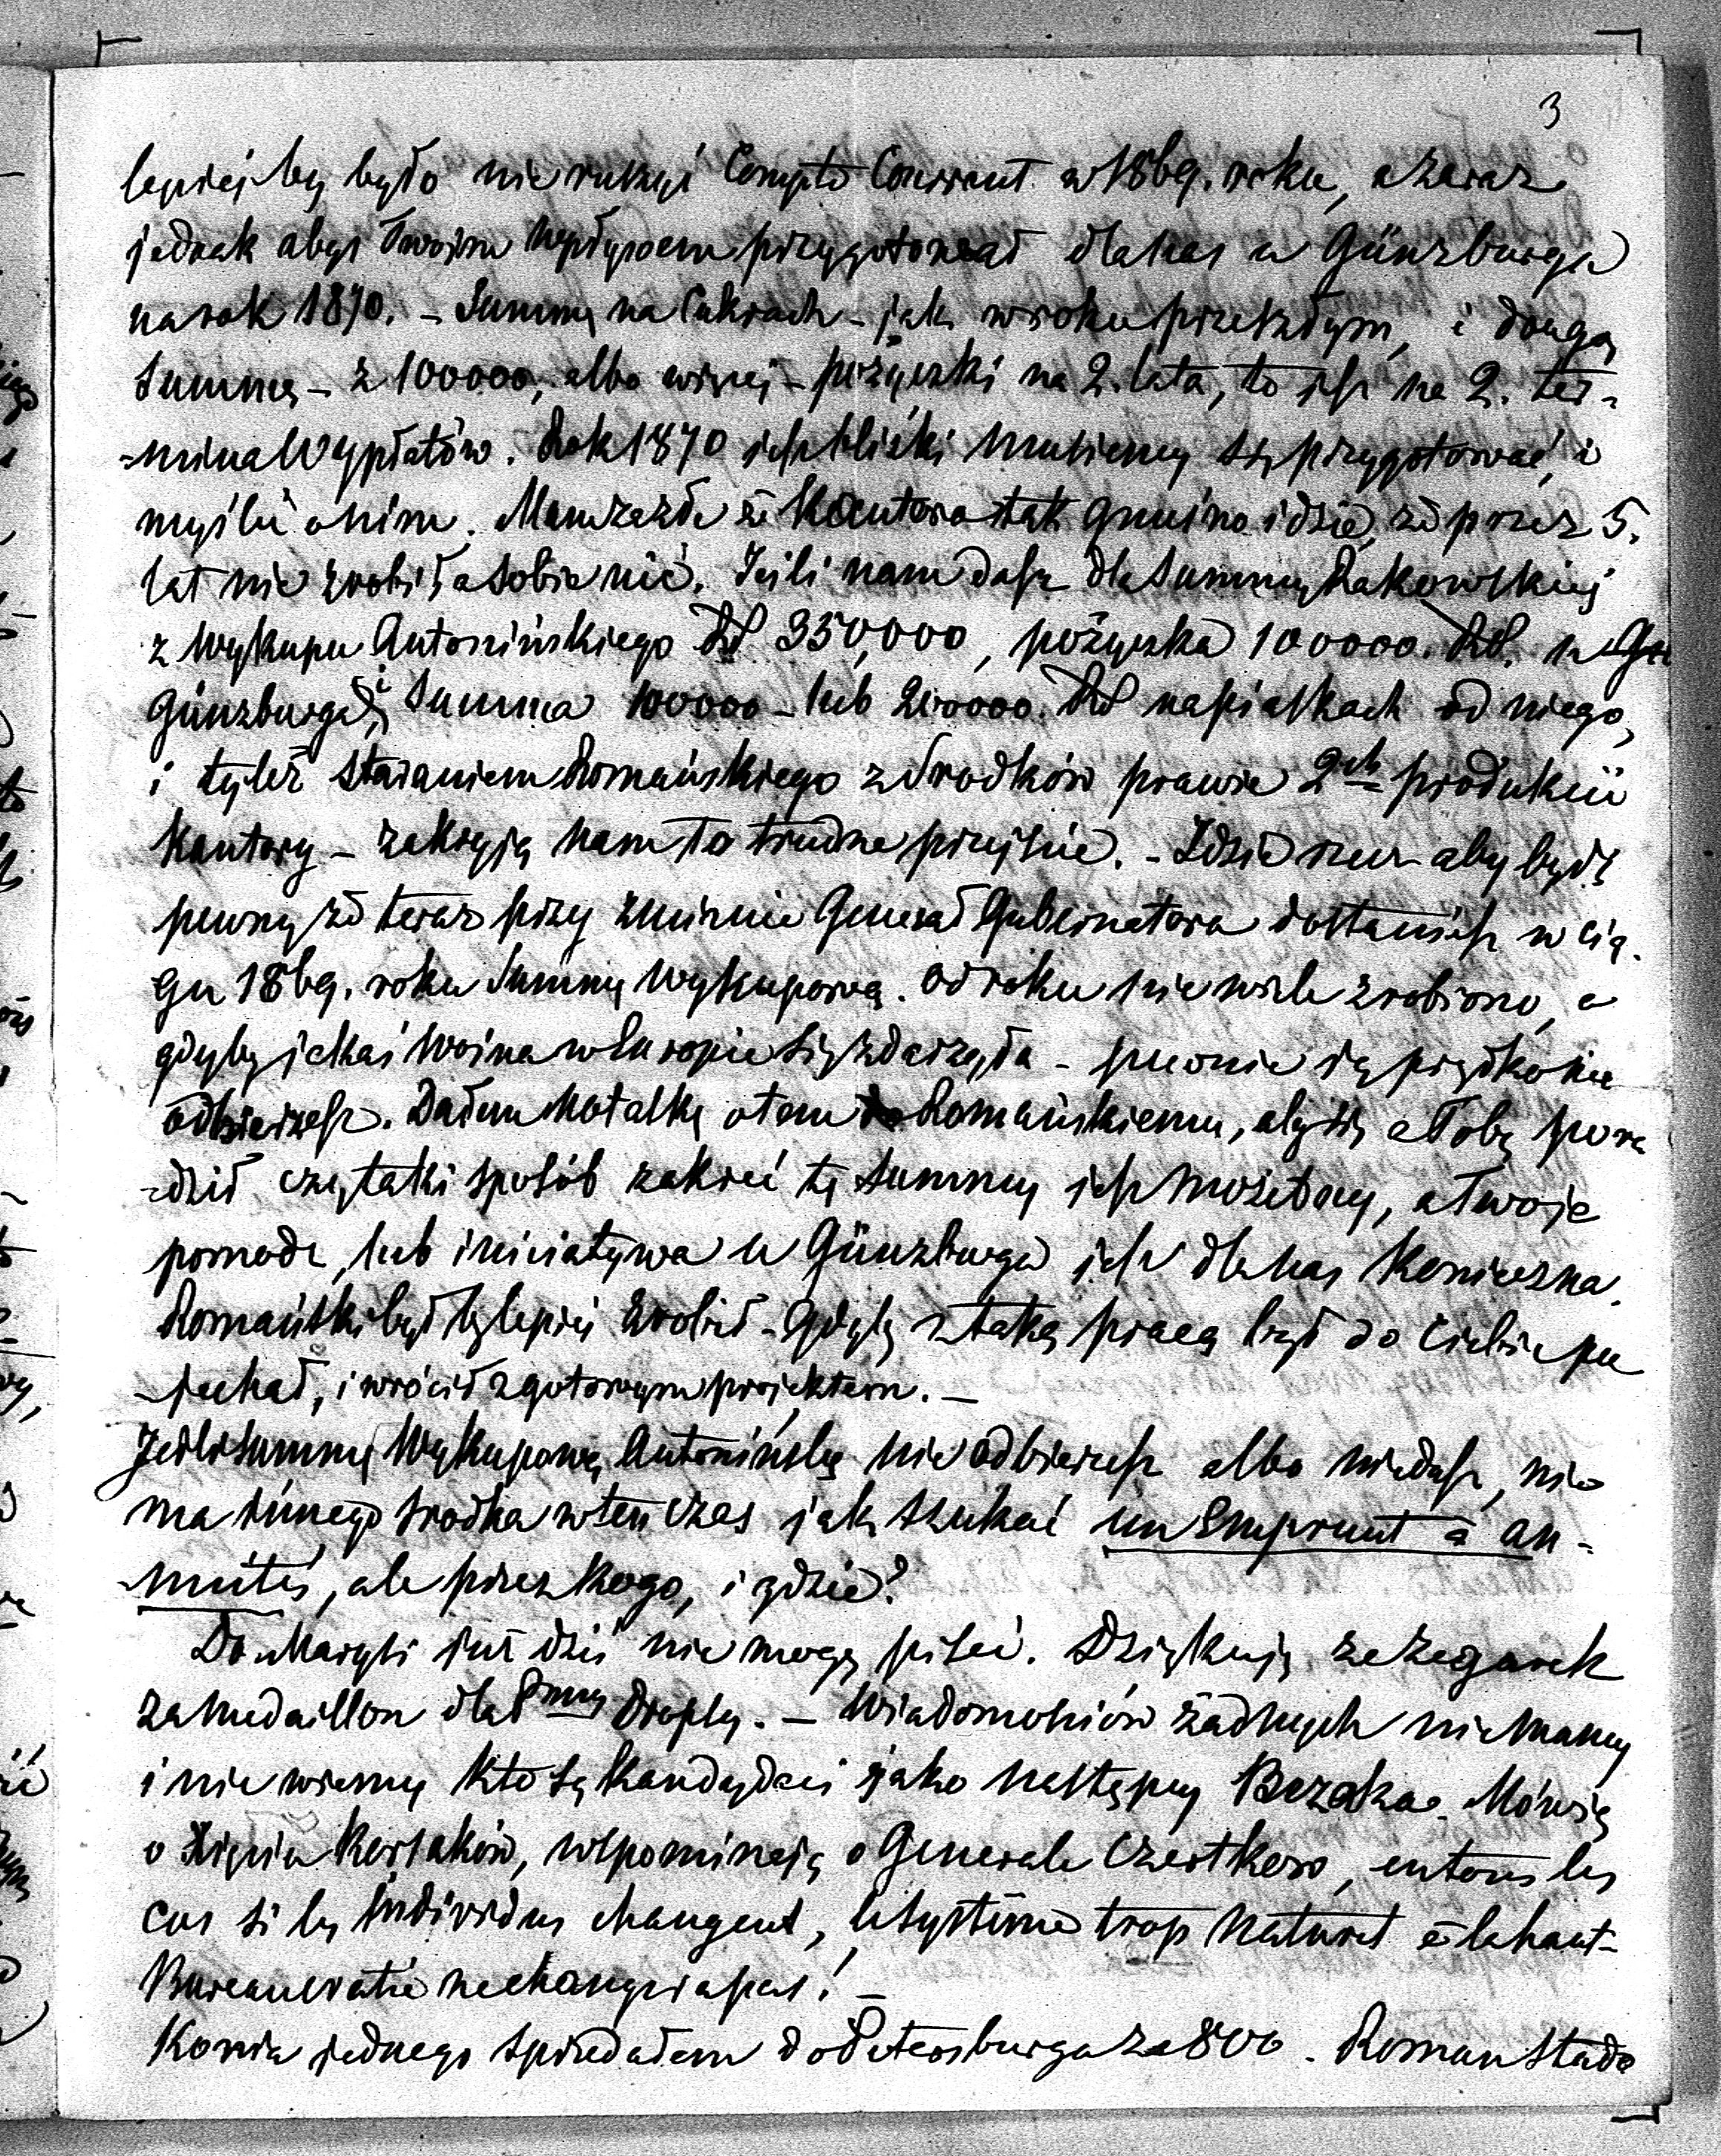 3
lepiej by było nie ruszyć Compte Courrant w 1869. roku, a zaraz
jednak abyś Twoim wpływem przygotował dla nas u Günzburga
na rok 1870. – Summę na Cukrach – jak w roku przeszłym, i drugą
Summę – z 100000, albo więcej – pożyczki na 2. lata, to jest na 2. ter-
-mina Wypłatów. Rok 1870 jest bliski musiemy się przygotować, i
myślić o nim. Mam zazde że Kantora tak gnuśno idzie, że przez 5.
lat nie zrobiła sobie nic. Jeśli nam dasz dla Summy Rakowskiej
z Wykupu Antonińskiego RS 350,000, pożyczka 100000. RS. u
Günzburga, i Summa 100000 – lub 200000. RS na piaskach od niego,
i tyleż staraniem Romańskiego z środków prawie 2ch produkcii
Kantory – zakryją nam to trudne przejście. – Idzie rzecz aby być
pewny że teraz przy zmianie Generał Gubernatora dostaniesz w cią-
gu 1869. roku Summę Wykupową. Od roku nie wiele zrobiono, a
gdyby jakaś Wojna w Europie się zdarzyła – pewnie ją prędko nie
odbierzesz. Dałem Notatkę o tem Romańskiemu, aby się z Tobą pora
-dził czy taki sposób zakryć tę Summę jest możebny, a Twoja
pomoc, lub iniciatywa u Günzburga jest dla nas Konieczna.
Romański byłby lepiej zrobił – gdyby z taką pracą był do Ciebie po
-jechał, i wrócił z gotowym projektem. –
Jeśli Summy Wykupowej Antonińskiej nie odbierzesz albo nie dasz, nie
ma innego środka wten czas jak szukać un Emprunt à an-
-nuités, ale przez kogo, i gdzie?
Do Maryli już dziś nie mogę pisać. Dziękuję za zegarek
za Medaillon dla Pnny Dropsy. – Wiadomościów żadnych nie mamy
i nie wiemy kto są Kandydaci jako następcy Bezaka. Mówią
o Xięciu Korsaków, wspominają o Generale Czertkow, en tous les
cas si les Individus changent, le système trop naturel à la haut-
Bureaucratie ne changera pas! –
Konia jednego sprzedałem do Petersburga za 800. Roman Stado